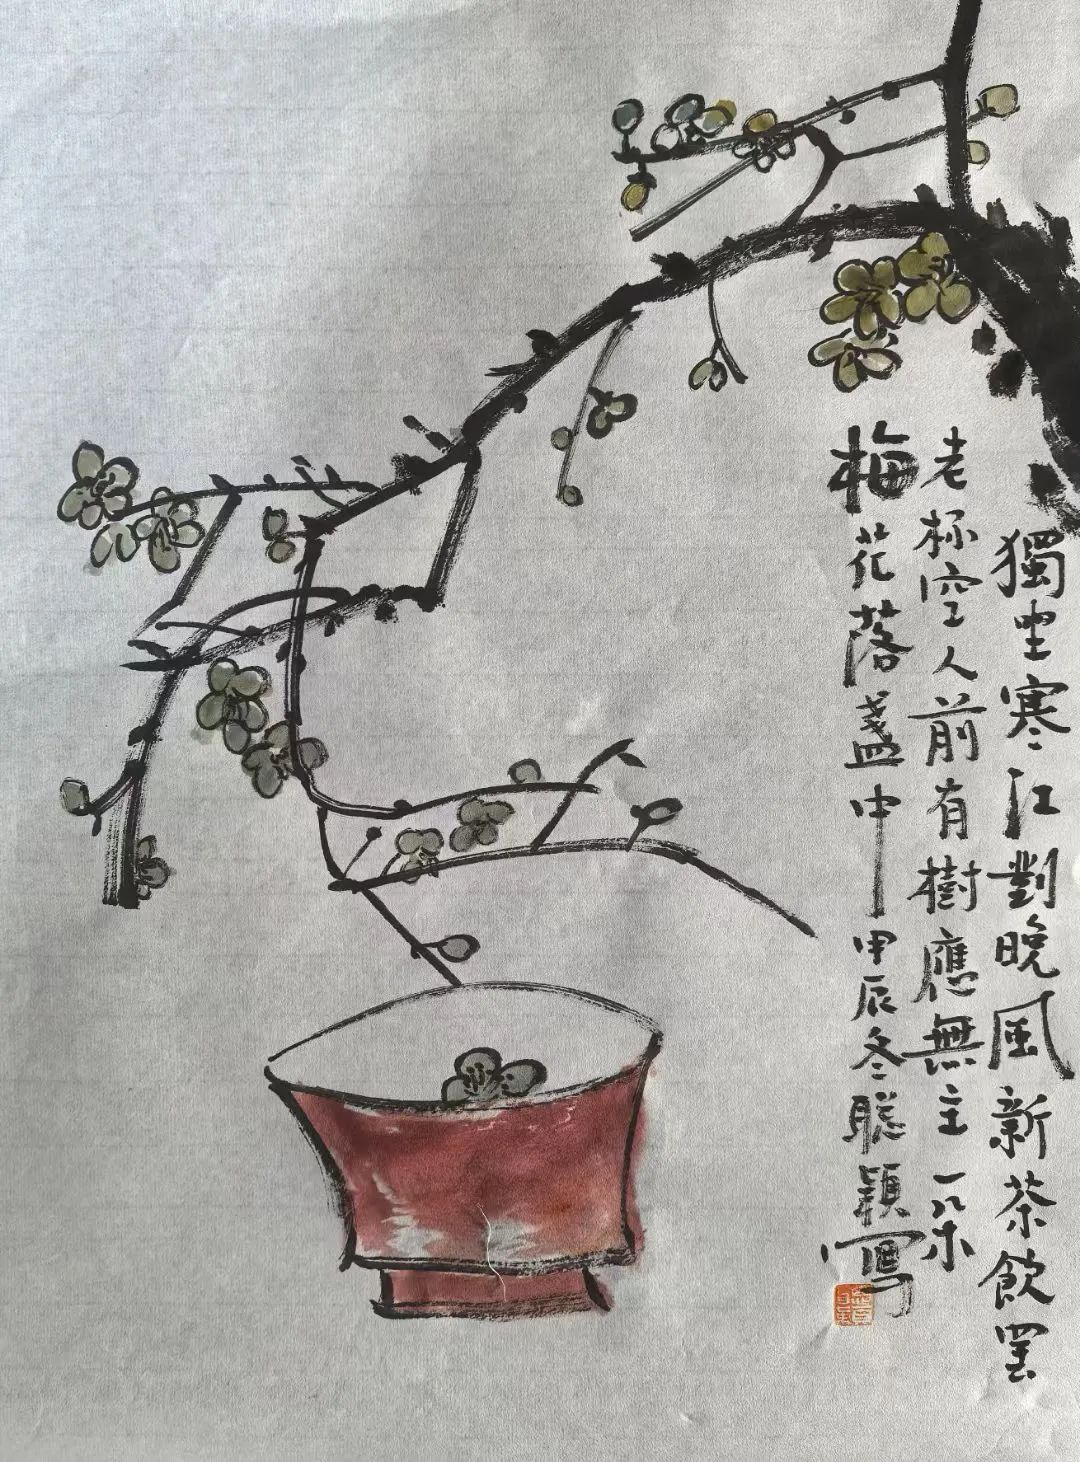 獨坐寒江對晚風新茶飲罢
老杯空人前有樹應無主一朵
梅花落盞中甲辰冬聪颖寫